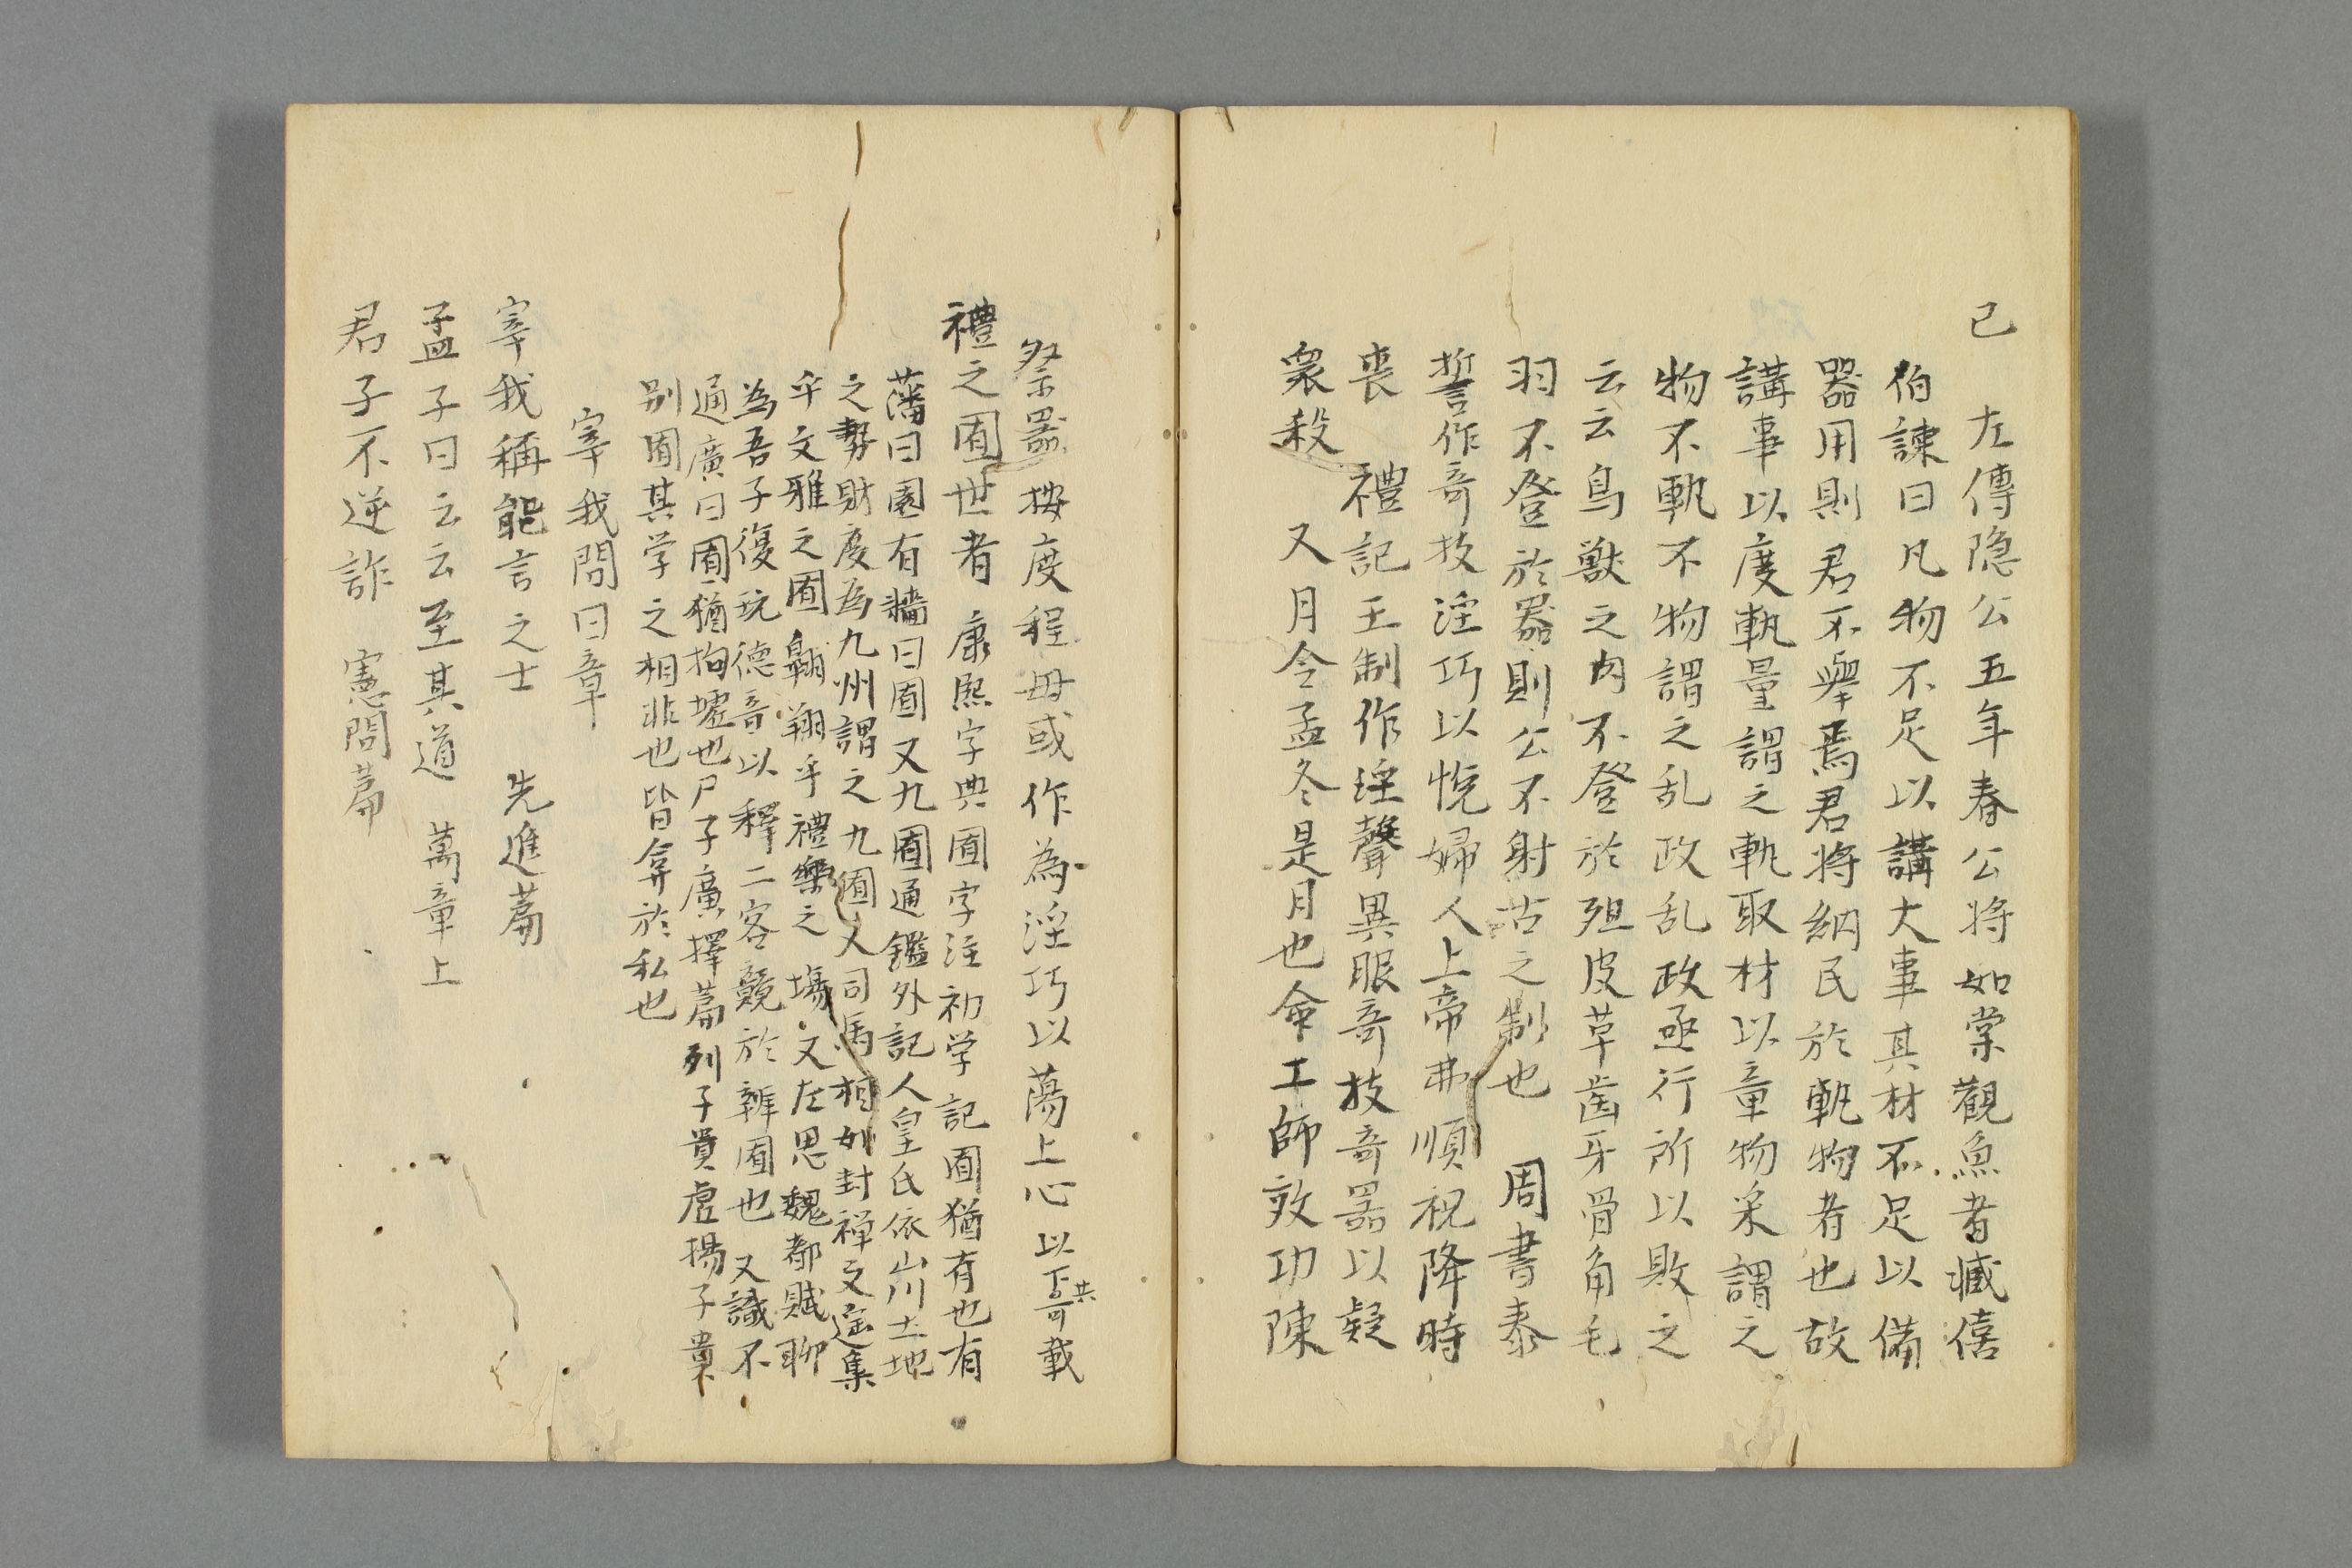 已　左傳隐公五年春公將如棠觀魚者臧僖
伯諫曰凡物不足以講大事其材不足以備
器用則君不舉焉君将納民於軌物者也故
講事以度軌量謂之軌取材以章物采謂之
物不軌不物謂之乱政乱政亟行所以敗之
云云鳥獣之肉不登於俎皮革歯牙骨角毛
羽不登於器則公不射古之制也　周書泰
誓作奇技淫巧以悦婦人上帝弗順祝降時
喪　禮記王制作淫聲異服奇技奇器以疑
衆殺　又月令孟冬是月也命工師效功陳
祭器按度程毋或作為淫巧以蕩上心 以下共奇載
禮之囿世者 康熙字典囿字注初学記囿猶有也有
藩曰園有牆曰囿又九囿通鑑外記人皇氏依山川土地
之勢財度為九州謂之九囿又司馬相如封禅文遥集
乎文雅之囿翺翔乎禮樂之塲又左思魏都賦聊
為吾子復玩德音以釋二客競於辨囿也 又識不
通廣曰囿猶拘墟也尸子廣擇篇列子貴虚揚子貴
别囿其学之相非也皆弇於私也
宰我問曰章
宰我稱能言之士　先進篇
孟子曰云云至其道　萬章上
君子不逆詐　憲問篇